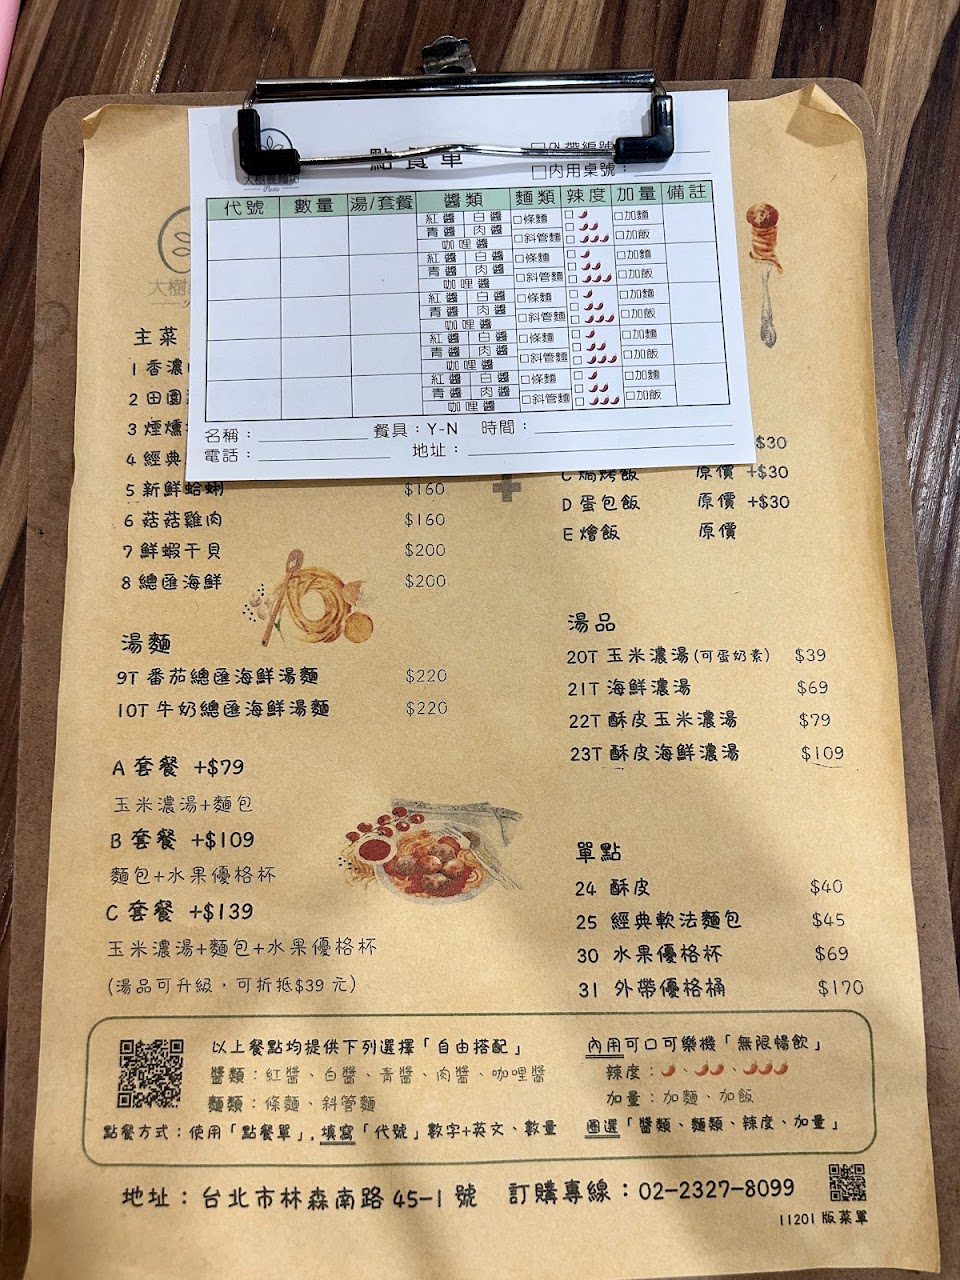 點餐單
□外帶編號：
□內用桌號：
大樹義麵坊
Pasta
代號 數量 湯/套餐 醬類 麵類 辣度 加量 備註
紅醬 白醬 □條麵 □ □加麵
青醬 肉醬 □
咖哩醬 □斜管麵 □ □加飯
紅醬 白醬 □條麵 □ □加麵
青醬 肉醬 □
咖哩醬 □斜管麵 □ □加飯
紅醬 白醬 □條麵 □ □加麵
青醬 肉醬 □
咖哩醬 □斜管麵 □ □加飯
紅醬 白醬 □條麵 □ □加麵
青醬 肉醬 □
咖哩醬 □斜管麵 □ □加飯
紅醬 白醬 □條麵 □ □加麵
青醬 肉醬 □
咖哩醬 □斜管麵 □ □加飯
名稱： 餐具：Y-N 時間：
電話： 地址：
大樹
主菜
1 香濃
2 田園
3 煙燻
4 經典
5 新鮮蛤蜊 $160
6 菇菇雞肉 $160
7 鮮蝦干貝 $200
8 總匯海鮮 $200
+
+$30
C 焗烤飯 原價 +$30
D 蛋包飯 原價 +$30
E 燴飯 原價
湯麵
9T 番茄總匯海鮮湯麵 $220
10T 牛奶總匯海鮮湯麵 $220
A 套餐 +$79
玉米濃湯+麵包
B 套餐 +$109
麵包+水果優格杯
C 套餐 +$139
玉米濃湯+麵包+水果優格杯
(湯品可升級，可折抵$39 元)
湯品
20T 玉米濃湯(可蛋奶素) $39
21T 海鮮濃湯 $69
22T 酥皮玉米濃湯 $79
23T 酥皮海鮮濃湯 $109
單點
24 酥皮 $40
25 經典軟法麵包 $45
30 水果優格杯 $69
31 外帶優格桶 $170
以上餐點均提供下列選擇「自由搭配」
醬類：紅醬、白醬、青醬、肉醬、咖哩醬
麵類：條麵、斜管麵
內用可口可樂機「無限暢飲」
辣度：、、
加量：加麵、加飯
點餐方式：使用「點餐單」，填寫「代號」數字+英文、數量 圈選「醬類、麵類、辣度、加量」
地址：台北市林森南路 45-1 號 訂購專線：02-2327-8099
11201 版菜單